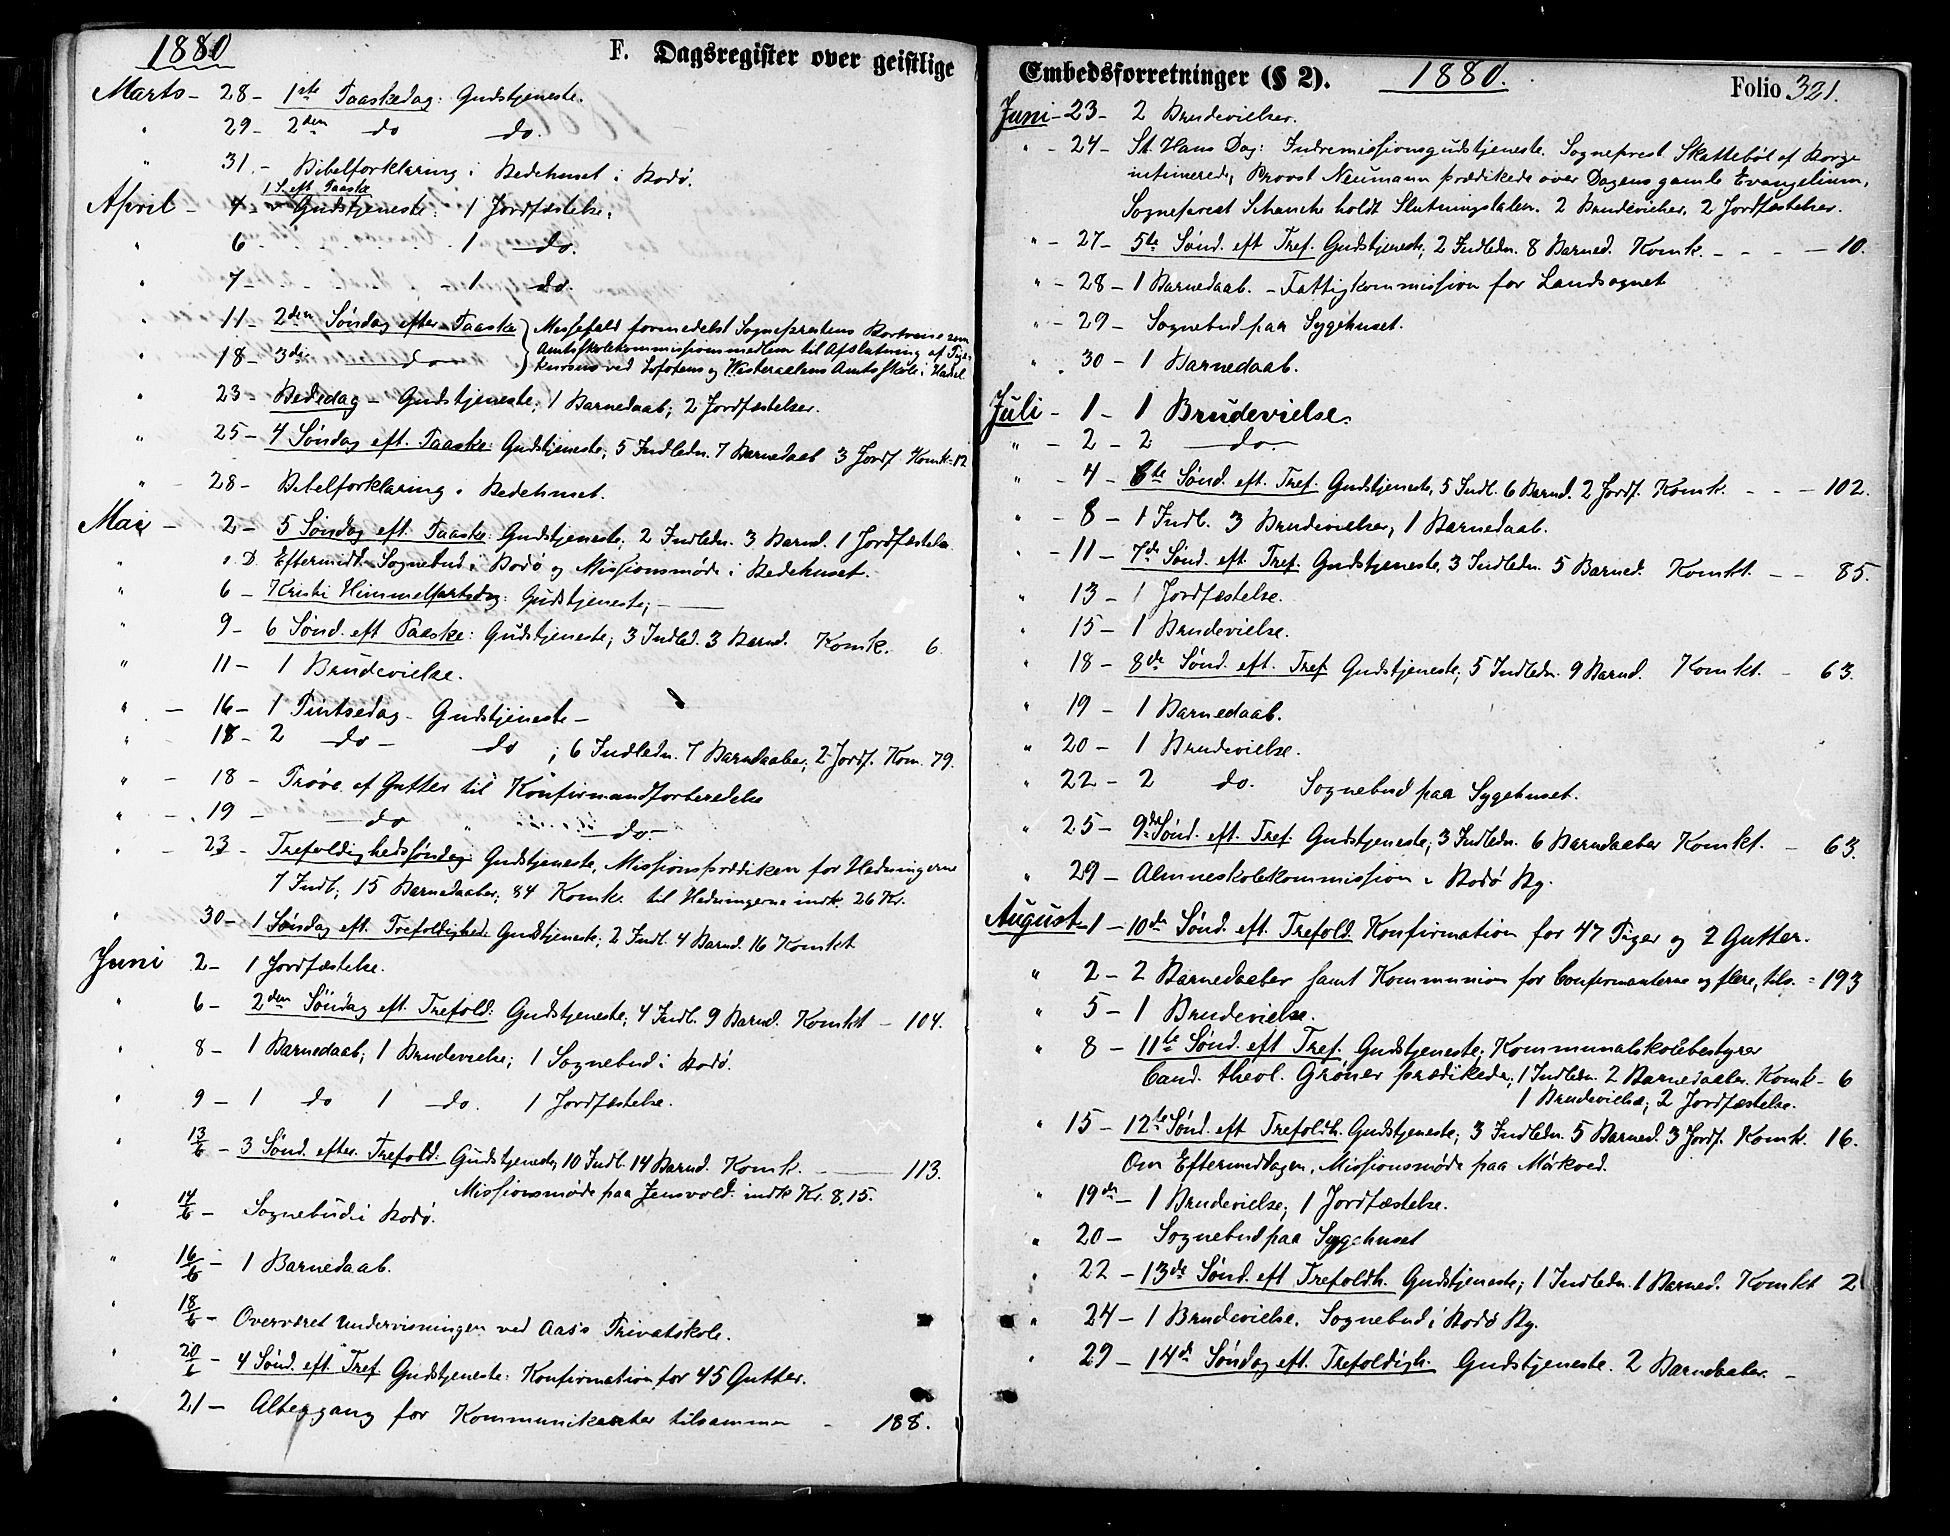 1880
F. Dagsregister over geistlige
Marts - 28 - 1ste Paaskedag: Gudstjeneste.
" 29 - 2den do do.
" 31. - Bibelforklaring i Bedehuset i Bodø.
1 S. eft Paaske
April - 4 - Gudstjeneste: 1 Jordfæstelse.
" 6 - 1 do.
" 7 - 1 do.
" 11 - 2den Søndag efter Paaske } Messefald formedelst Sogneprestens Bortreise som
Amtsskolekommissionsmedlem til Afslutning af Pige-
" 18 - 3die do } kursus ved Lofotens og Westeraalens Amtsskole i Hadsel
" 23 - Bededag - Gudstjeneste; 1 Barnedaab; 2 Jordfæstelser.
" 25 - 4 Søndag eft. Paaske: Gudstjeneste; 5 Indledn. 7 Barnedaab 3 Jordf Komk - 12
" 28 - Bibelforklaring i Bedehuset.
Mai - 2 - 5 Søndag eft. Paaske: Gudstjeneste; 2 Indledn. 3 Barnd. 1 Jordfæstelse
" " D. Eftermidt. Sognebud i Bodø og Missionsmøde i Bedehuset.
" 6 - Kristi Himmelfartsdag: Gudstjeneste;
" 9 - 6 Sønd. eft Paaske: Gudstjeneste; 3 Indled. 3 Barnd. Komk. 6.
" 11 - 1 Brudevielse.
" - 16 - 1 Pintsedag - Gudstjeneste -
" 18 - 2 do - do ; 6 Indledn. 7 Barndaaber, 2 Jordf. Kom. 79.
" - 18 - Prøve af Gutter til Konfirmandforberedelse
" - 19 - do " do -
" - 23 - Trefoldighedssøndag: Gudstjeneste, Missionsprædiken for Hedningerne
7 Indl; 15 Barnedaaber; 84 Komk. til Hedningerne indk. 26 Kr.
" 30 - 1 Søndag eft. Trefoldighed: Gudstjeneste; 2 Indl. 4 Barnd. 16 Komkt
Juni 2 - 1 Jordfæstelse.
" 6 - 2den Søndag eft. Trefold: Gudstjeneste; 4 Indl. 9 Barnd. Komkt - 104.
" 8 - 1 Barnedaab; 1 Brudevielse; 1 Sognebud i Bodø.
" 9 - 1 do 1 do. 1 Jordfæstelse.
" 13/6 - 3 Sønd. efter Trefold: Gudstjeneste, 10 Indl. 14 Barnd. Komk. - 113.
Missionsmøde paa Jensvold. indk Kr. 8,15.
" 14/6 - Sognebud i Bodø.
" 16/6 - 1 Barnedaab.
" 18/6 - Overværet Undervisningen ved Aas's Privatskole.
" 20/6 - 4 Sønd. eft. Tref Gudstjeneste: Konfirmation for 45 Gutter.
" 21 - Altergang for Kommunikanter tilsammen - 188.
Embedsforretninger (§ 2). 1880. Folio 321.
Juni - 23 - 2 Brudevielser.
" - 24 - St. Hans Dag: Indremissionsgudstjeneste. Sogneprest Skattebøl af Borge
messede, Provst Neumann prædikede over Dagens gamle Evangelium,
Sogneprest Schanche holdt Slutningstalen. 2 Brudevielser, 2 Jordfæstelser.
" - 27 - 5te Sønd. eft Tref. Gudstjeneste; 2 Indledn. 8 Barned. Komk. - - - 10.
" - 28 - 1 Barnedaab. - Fattigkommission for Landsognet
" - 29 - Sognebud paa Sygehuset.
" . 30 - 1 Barnedaab.
Juli - 1 - 1 Brudevielse.
" - 2 - 2 do -
" - 4 - 6te Sønd. eft. Tref. Gudstjeneste, 5 Indl. 6 Barnd. 2 Jordf. Komk. - - - 102.
" - 8 - 1 Indl. 3 Brudevielser, 1 Barnedaab.
" - 11 - 7de Sønd. eft. Tref. Gudstjeneste, 3 Indledn. 5 Barned. Komkt. - - 85.
" 13 - 1 Jordfæstelse.
" 15 - 1 Brudevielse.
" 18 - 8de Sønd. eft. Tref Gudstjeneste; 5 Indledn. 9 Barnd. Komkt. - 63.
" 19 - 1 Barnedaab.
" 20 - 1 Brudevielse.
" 22 - 2 do. Sognebud paa Sygehuset.
" 25 - 9de Sønd. eft. Tref. Gudstjeneste; 3 Indledn. 6 Barndaaber Komkt. - 63.
" 29 - Almueskolekommission i Bodø By.
August - 1 - 10de Sønd. eft. Trefold Konfirmation for 47 Piger og 2 Gutter.
" 2 - 2 Barnedaaber samt Kommunion for Confirmanterne og flere, tils. = 193
" 5 - 1 Brudevielse.
" 8 - 11te Sønd. eft Tref. Gudstjeneste; Kommunalskolebestyrer
Cand. theol. Grøner prædikede; 1 Indledn. 2 Barnedaaber. Komk - 6
1 Brudevielse; 2 Jordfæstelse.
" 15 - 12te Sønd. eft Trefoldh. Gudstjeneste; 3 Indledn. 5 Barned. 3 Jordf. Komk. 16.
Om Eftermiddagen, Missionsmøde paa Mörkved.
" 19de - 1 Brudevielse; 1 Jordfæstelse.
" 20 - Sognebud paa Sygehuset
" 22 - 13de Sønd. eft Trefoldh. Gudstjeneste; 1 Indledn. 1 Barned. Komkt 2
" 24 - 1 Brudevielse. Sognebud i Bodø By.
" 29 - 14de Søndag eft. Trefoldigh. Gudstjeneste. 2 Barndaaber. -